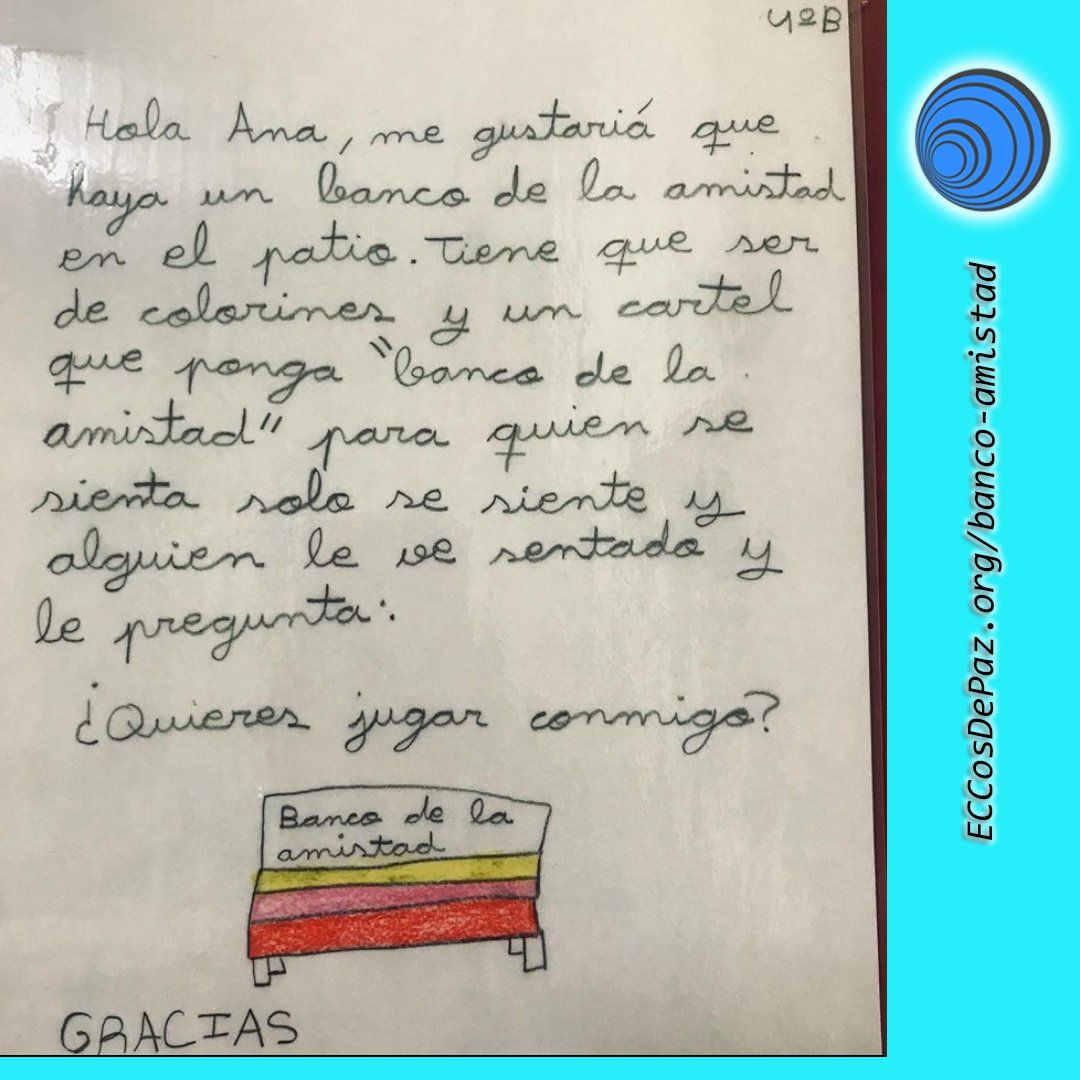 4ºB
Hola Ana, me gustariá que
haya un banco de la amistad
en el patio. Tiene que ser
de colorines y un cartel
que ponga "banco de la
amistad" para quien se
sienta solo se siente y
alguien le ve sentado y
le pregunta:
¿Quieres jugar conmigo?
Banco de la
amistad
GRACIAS
ECCosDePaz.org/banco-amistad